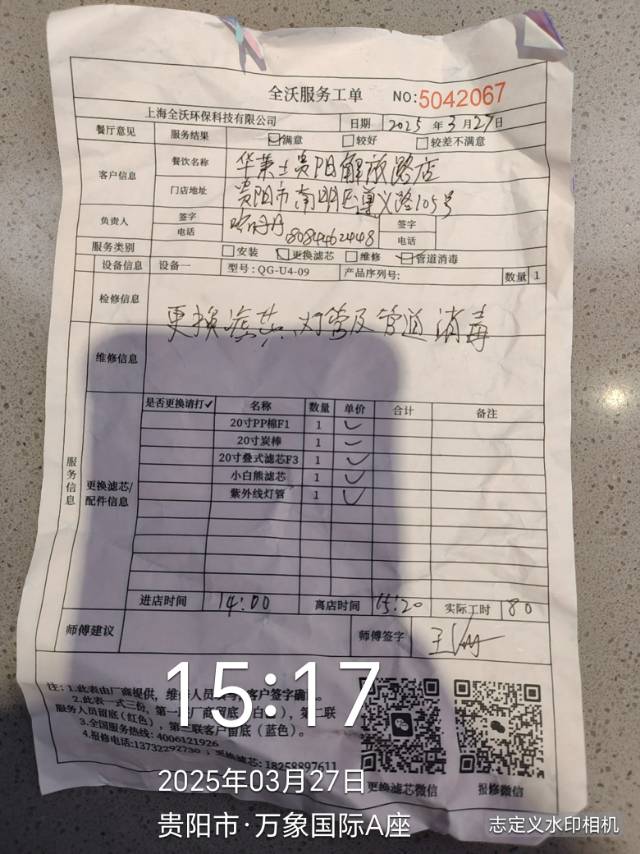 全沃服务工单 NO:5042067
上海全沃环保科技有限公司 日期 2025 年 3 月 27 日
餐厅意见 服务结果 满意 较好 较差不满意
客户信息 餐饮名称 华莱士贵阳解放路店
门店地址 贵阳市南明区遵义路105号
负责人 签字 签字
电话 电话
服务类别 安装 更换滤芯 维修 管道消毒
设备信息 设备一 型号:QG-U4-09 产品序列号: 数量 1
检修信息 更换滤芯 灯管及管道消毒
维修信息
服务信息
更换滤芯/配件信息
是否更换请打✓ 名称 数量 单价 合计 备注
20寸PP棉F1 1 ✓
20寸炭棒 1 ✓
20寸叠式滤芯F3 1 ✓
小白熊滤芯 1 ✓
紫外线灯管 1 ✓
进店时间 14:00 离店时间 15:20 实际工时 80
师傅建议 师傅签字
注:1.此表由厂商提供,维
客户签字确
2.此表一式三份,第一
厂商留底
白
第二联
服务人员留底(红色),第三联客户留底(蓝色)。
3.全国服务热线:4006121926
4.报修电话:13732292730 ;更换滤芯:18258897611
更换滤芯微信 报修微信
15:17
2025年03月27日
贵阳市·万象国际A座
志定义水印相机